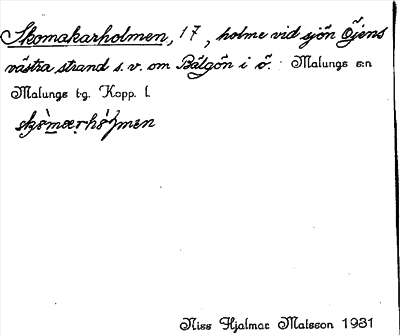 Skomakarholmen, 17, holme vid sjön Öjens
västra strand s. v. om Bålgön i ö. Malungs s:n
Malungs t-g. Kopp. l.
Niss Hjalmar Matsson 1931